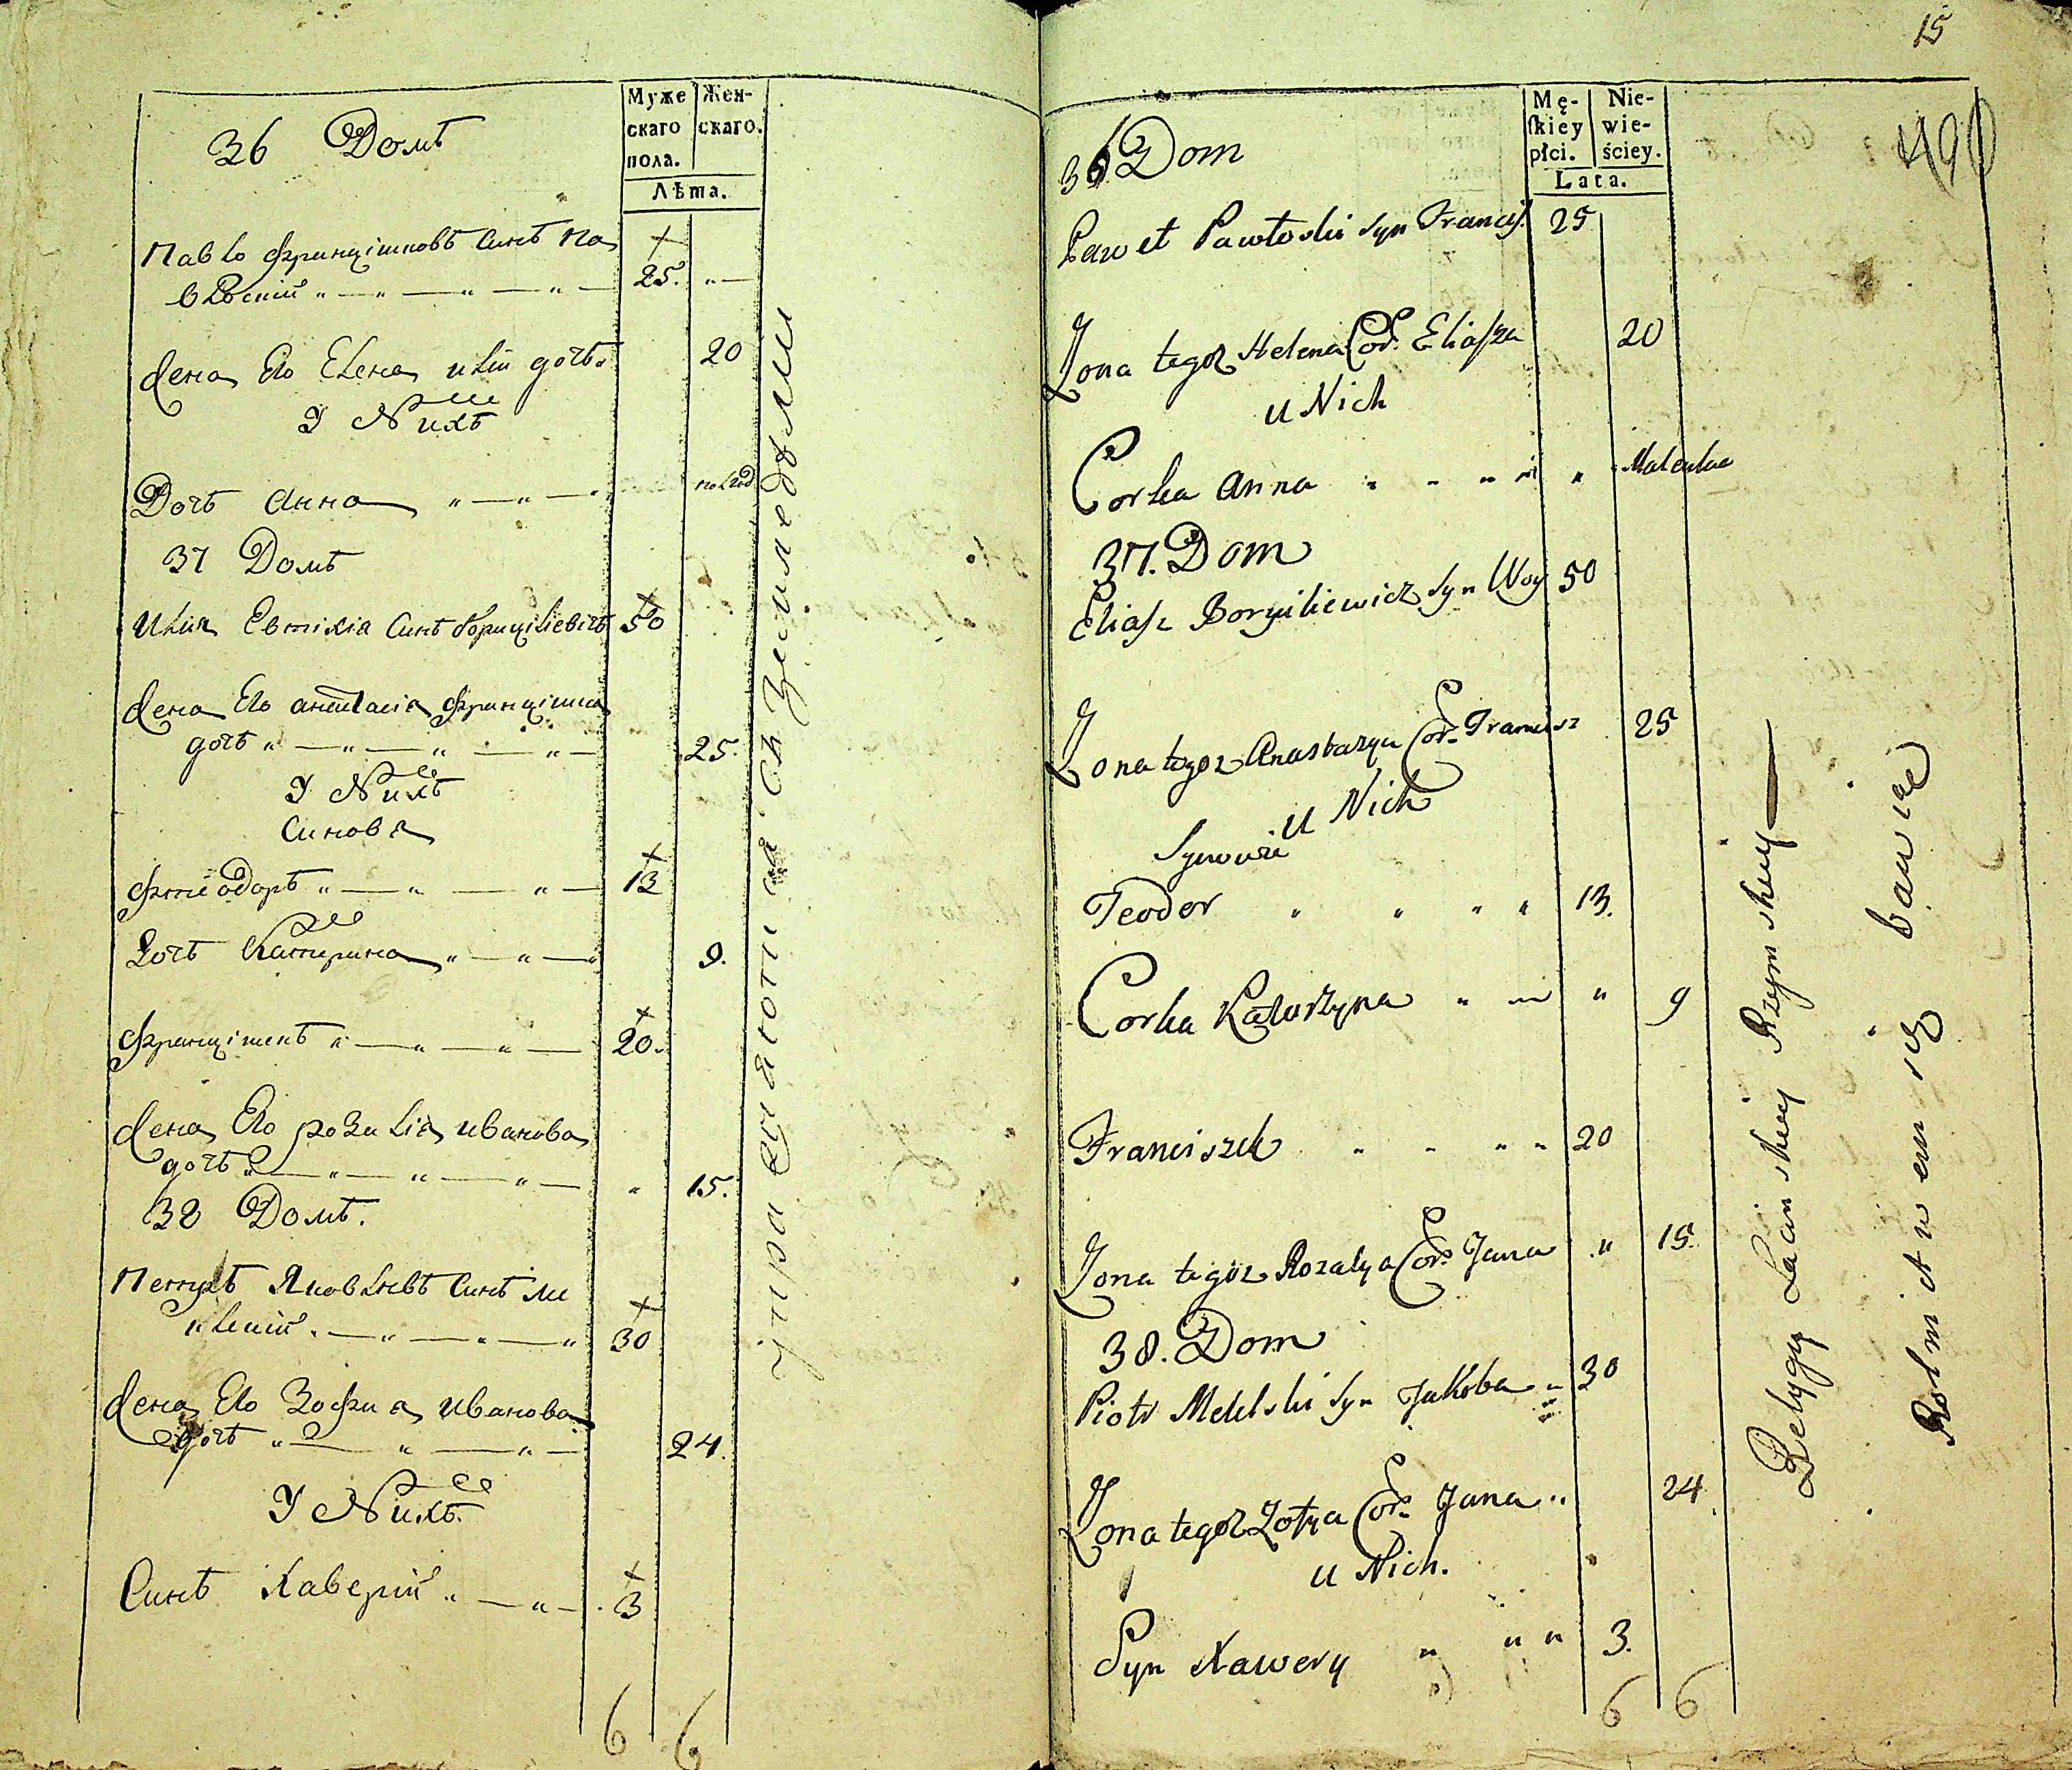 36 Домъ
Муже Жен-
скаго скаго.
пола.
Лѣта.
Павло Францішковъ Синъ Па
влоскій 25.
Жена Его Елена илiи дочъ 20
У Нихъ
Дочъ Анна полгод
37 Домъ
Илия Евтихія Синъ 50
Жена Его Анастасія Францішка
дочъ 25.
У Нихъ
Синовя
Фтеодоръ 13
Дочъ Катерина 9.
Францішекъ 20.
Жена Его розалія иванова
дочъ 15.
38 Домъ.
Петръ Яковлевъ Синъ Ме
клскій 30
Жена Его Зофия иванова
дочъ 24.
У Нихъ.
Синъ Каверій 3
6 6
15
490
36 Dom
Mę- Nie-
skiey wie-
płci. ściey.
Lata.
Paweł Pawłoski syn Francis. 25
Żona tegoż Helena Cor. Eliasza 20
u Nich
Corka Anna Malenka
37. Dom
Eliasz syn Woy 50
Żona tegoż Anastazya Cor. Francisz 25
u Nich
Synowie
Teodor 13.
Corka Katarzyna 9
Franciszek 20
Żona tegoż Rozalya Cor. Jana 15.
38. Dom
Piotr Meklski syn Jakoba 30
Żona tegoż Zofya Cor. Jana 24
u Nich.
Syn Xawery 3.
6 6
Religy Łacinskiey Rzymskiey
Rolnictwem się bawiąe